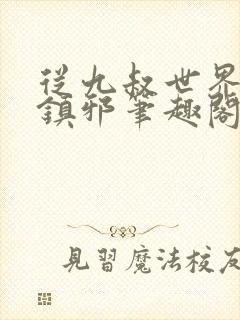 從九叔世界
鎮邪筆趣閣
見習魔法校友